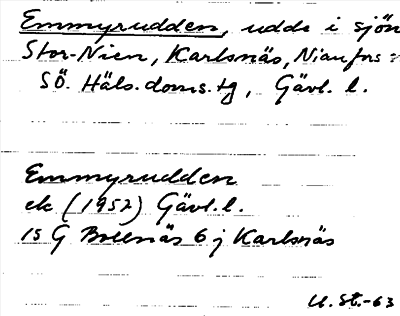 Emmyrudden, udde i sjön
Stor-Nien, Karlsnäs, Nianfors :
SÖ. Häls. doms. tg, Gävl. l.
Emmyrudden
ek (1952) Gävl. l.
15 G Boenäs 6 j Karlsnäs
U. St. -63